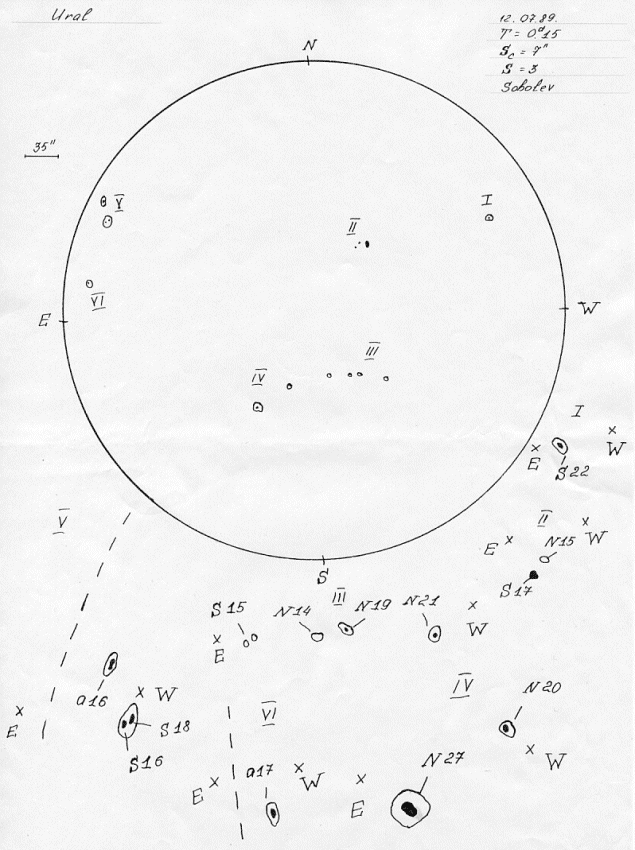 Ural
12.07.89.
T = 0ᵈ15
S꜀ = 7"
S = 3
Sobolev
N
35"
V
I
II
VI
E
W
III
IV
I
E
W
S22
V
II
E
W
N15
S17
S
III
S15
N14
N19
N21
E
W
a16
W
E
S18
S16
IV
N20
W
VI
a17
E
W
N27
E